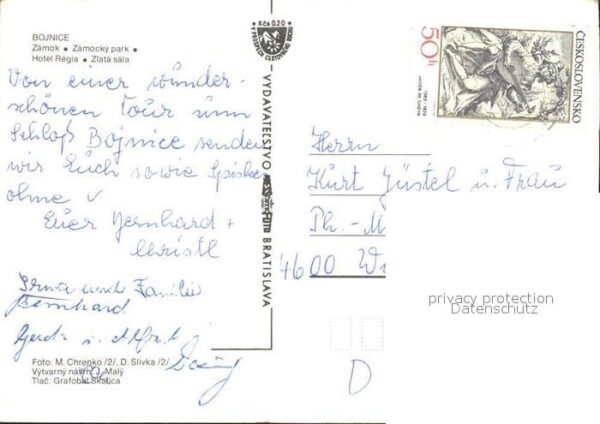 BOJNICE
Zámok • Zámocký park •
Hotel Régia • Zlatá sála
Von einer wunder-
schönen Tour zum
Schloß Bojnice senden
wir Euch sowie
ohme
Euer Bernhard +
Christl
Irma und Familie
Bernhard
Gerda u. Alfred
Foto: M. Chrenko /2/, D. Slivka /2/
Výtvarný návrh J. Malý
Tlač: Grafobal Skalica
Kčs 0,20
VYDAVATEĽSTVO
BRATISLAVA
50h
ČESKOSLOVENSKO
Herrn
Kurt Jüstel u. Frau
Ph.-M
4600 Wi
D
privacy protection
Datenschutz